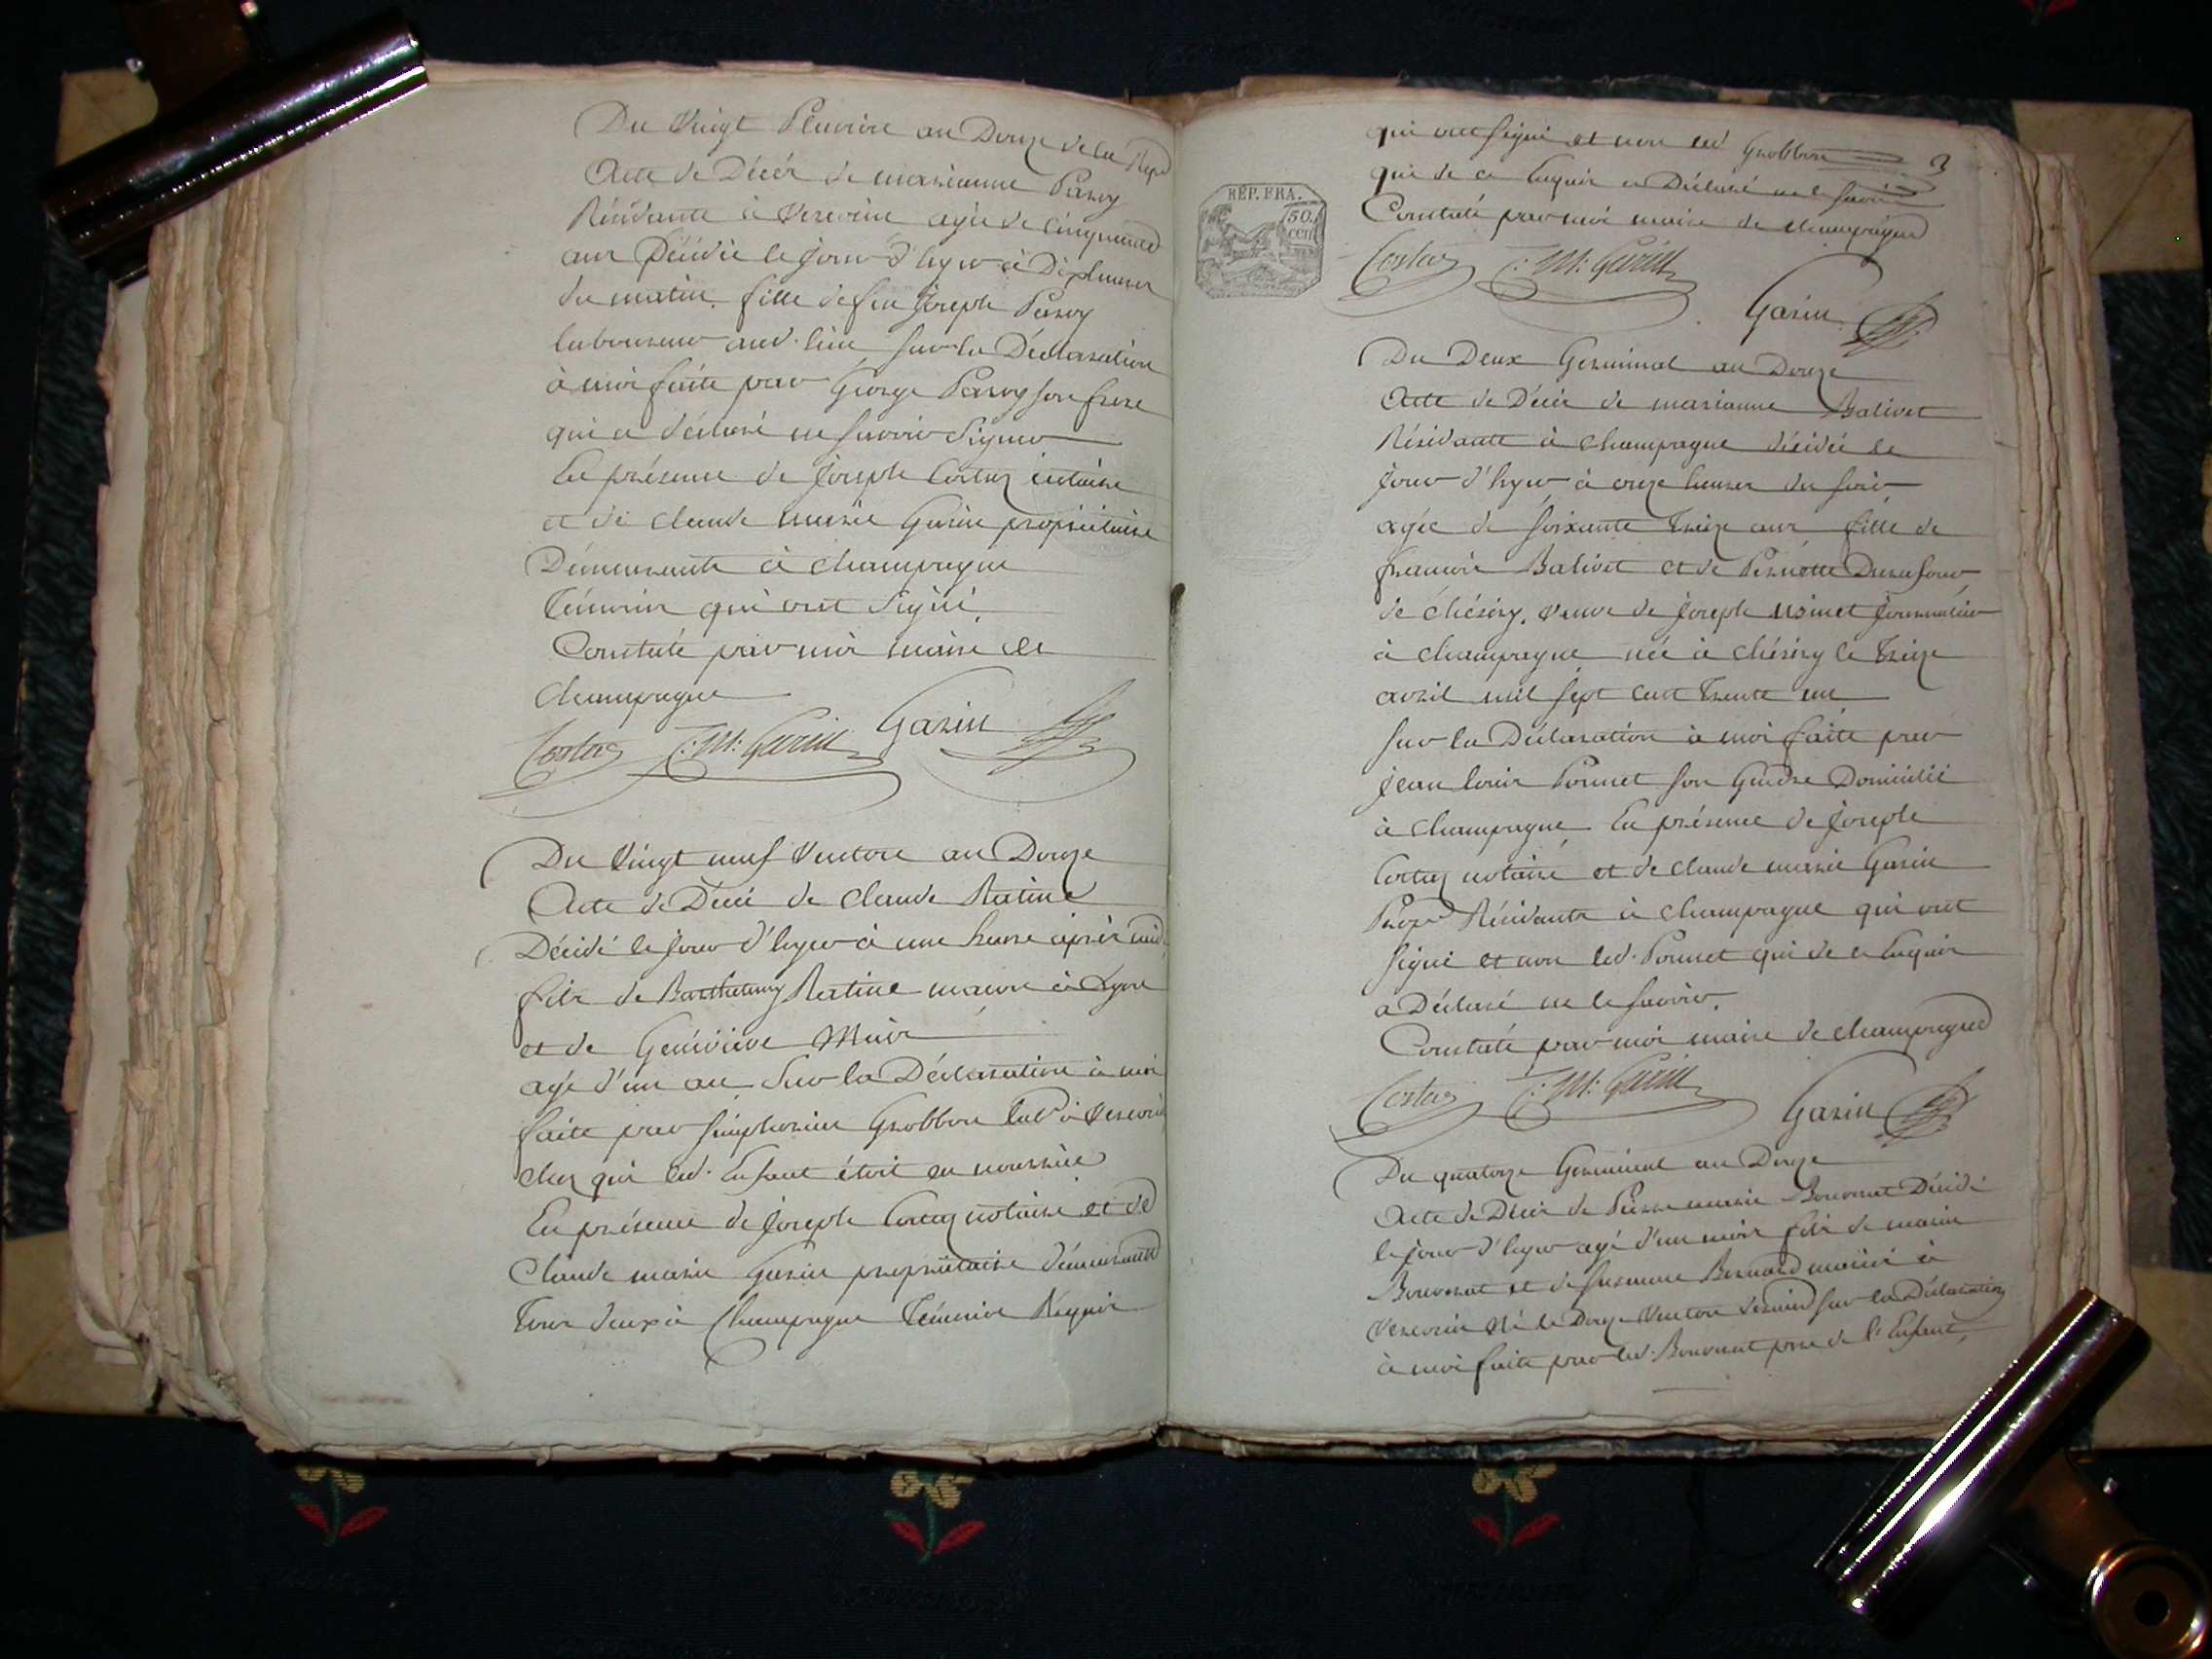 Du Vingt Pluviôse an Douze de la Repe
Acte de Décès de marianne Parroy
Résidante à Vereoin agée de cinquante
ans Décédée le jour d'hyer à Dix heures
du matin, fille de feu Joseph Parroy
laboureur aud. lieu sur la Déclaration
à moi faite par George Parroy son frere
qui a déclaré ne savoir Signer
En présence de Joseph Costaz notaire
et de claude marie Garin propriétaire
Démeurants à Champagne
Témoins qui ont Signé.
Constaté par moi maire de
Champagne
Costaz C: M: Garin Garin
Du Vingt neuf Ventose an Douze
Acte de Décès de Claude Ratine
Décédé le jour d'hyer à une heure après midi
fils de Barthelemy Ratine maçon à Lyon
et de Genéviève
agé d'un an Sur la Déclaration à moi
faite par Simphorien Grobbon labr à Vereoin
chez qui led. Enfant étoit en nourrice
En présence de Joseph Costaz notaire et de
Claude marie Garin propriétaire démeurants
tous deux à Champagne Témoins Réquis
3
qui ont signé et non led Grobbon
qui de ce Enquis a Déclaré ne le savoir
Constaté par moi maire de champagne
REP. FRA.
50.
cent
Costaz C: M: Garin
Garin
Du Deux Germinal an Douze
Acte de Décès de marianne Balivet
Résidante à Champagne décédée le
jour d'hyer à onze heures du soir
agée de soixante treize ans fille de
françois Balivet et de Pernette Dufour
de Chésery, veuve de Joseph journalier
à Champagne née à Chésery le treize
avril mil sept cent trente un
sur la Déclaration à moi faite par
jean louis Ponnet son Gendre Domicilié
à Champagne En présence de Joseph
Costaz notaire et de claude marie Garin
Propre Résidants à Champagne qui ont
signé et non led. Ponnet qui de ce Enquis
a Déclaré ne le savoir.
Constaté par moi maire de champagne
Costaz C: M: Garin
Garin
Du quatorze Germinal an Douze
Acte de Décès de Pierre marie Bouverat Décédé
le jour d'hyer agé d'un mois fils de marin
Bouverat et de Susanne Bernard mariés à
Vereoin Né le Douze Ventose dernier sur la Déclaration
à moi faite par led. Bouverat père de l'Enfant,